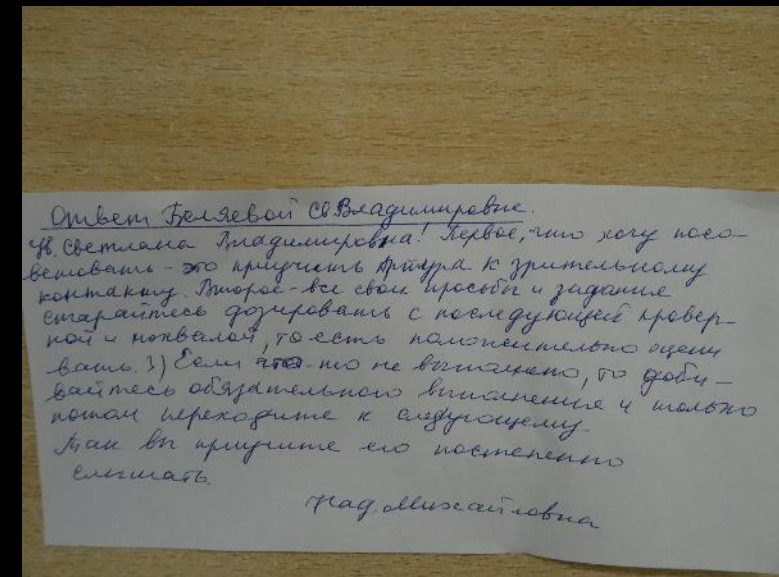 Ответ Беляевой Св Владимировне.
Ув. Светлана Владимировна! Первое, что хочу посо-
ветовать - это приучить Артура к зрительному
контакту. Второе - все свои просьбы и задание
старайтесь дозировать с последующей провер-
кой и похвалой, то есть положительно оцени
вать. 3) Если что-то не выполнено, то доби-
вайтесь обязательного выполнения и только
потом переходите к следующему.
Так вы приучите его постепенно
слышать.
Над. Михайловна